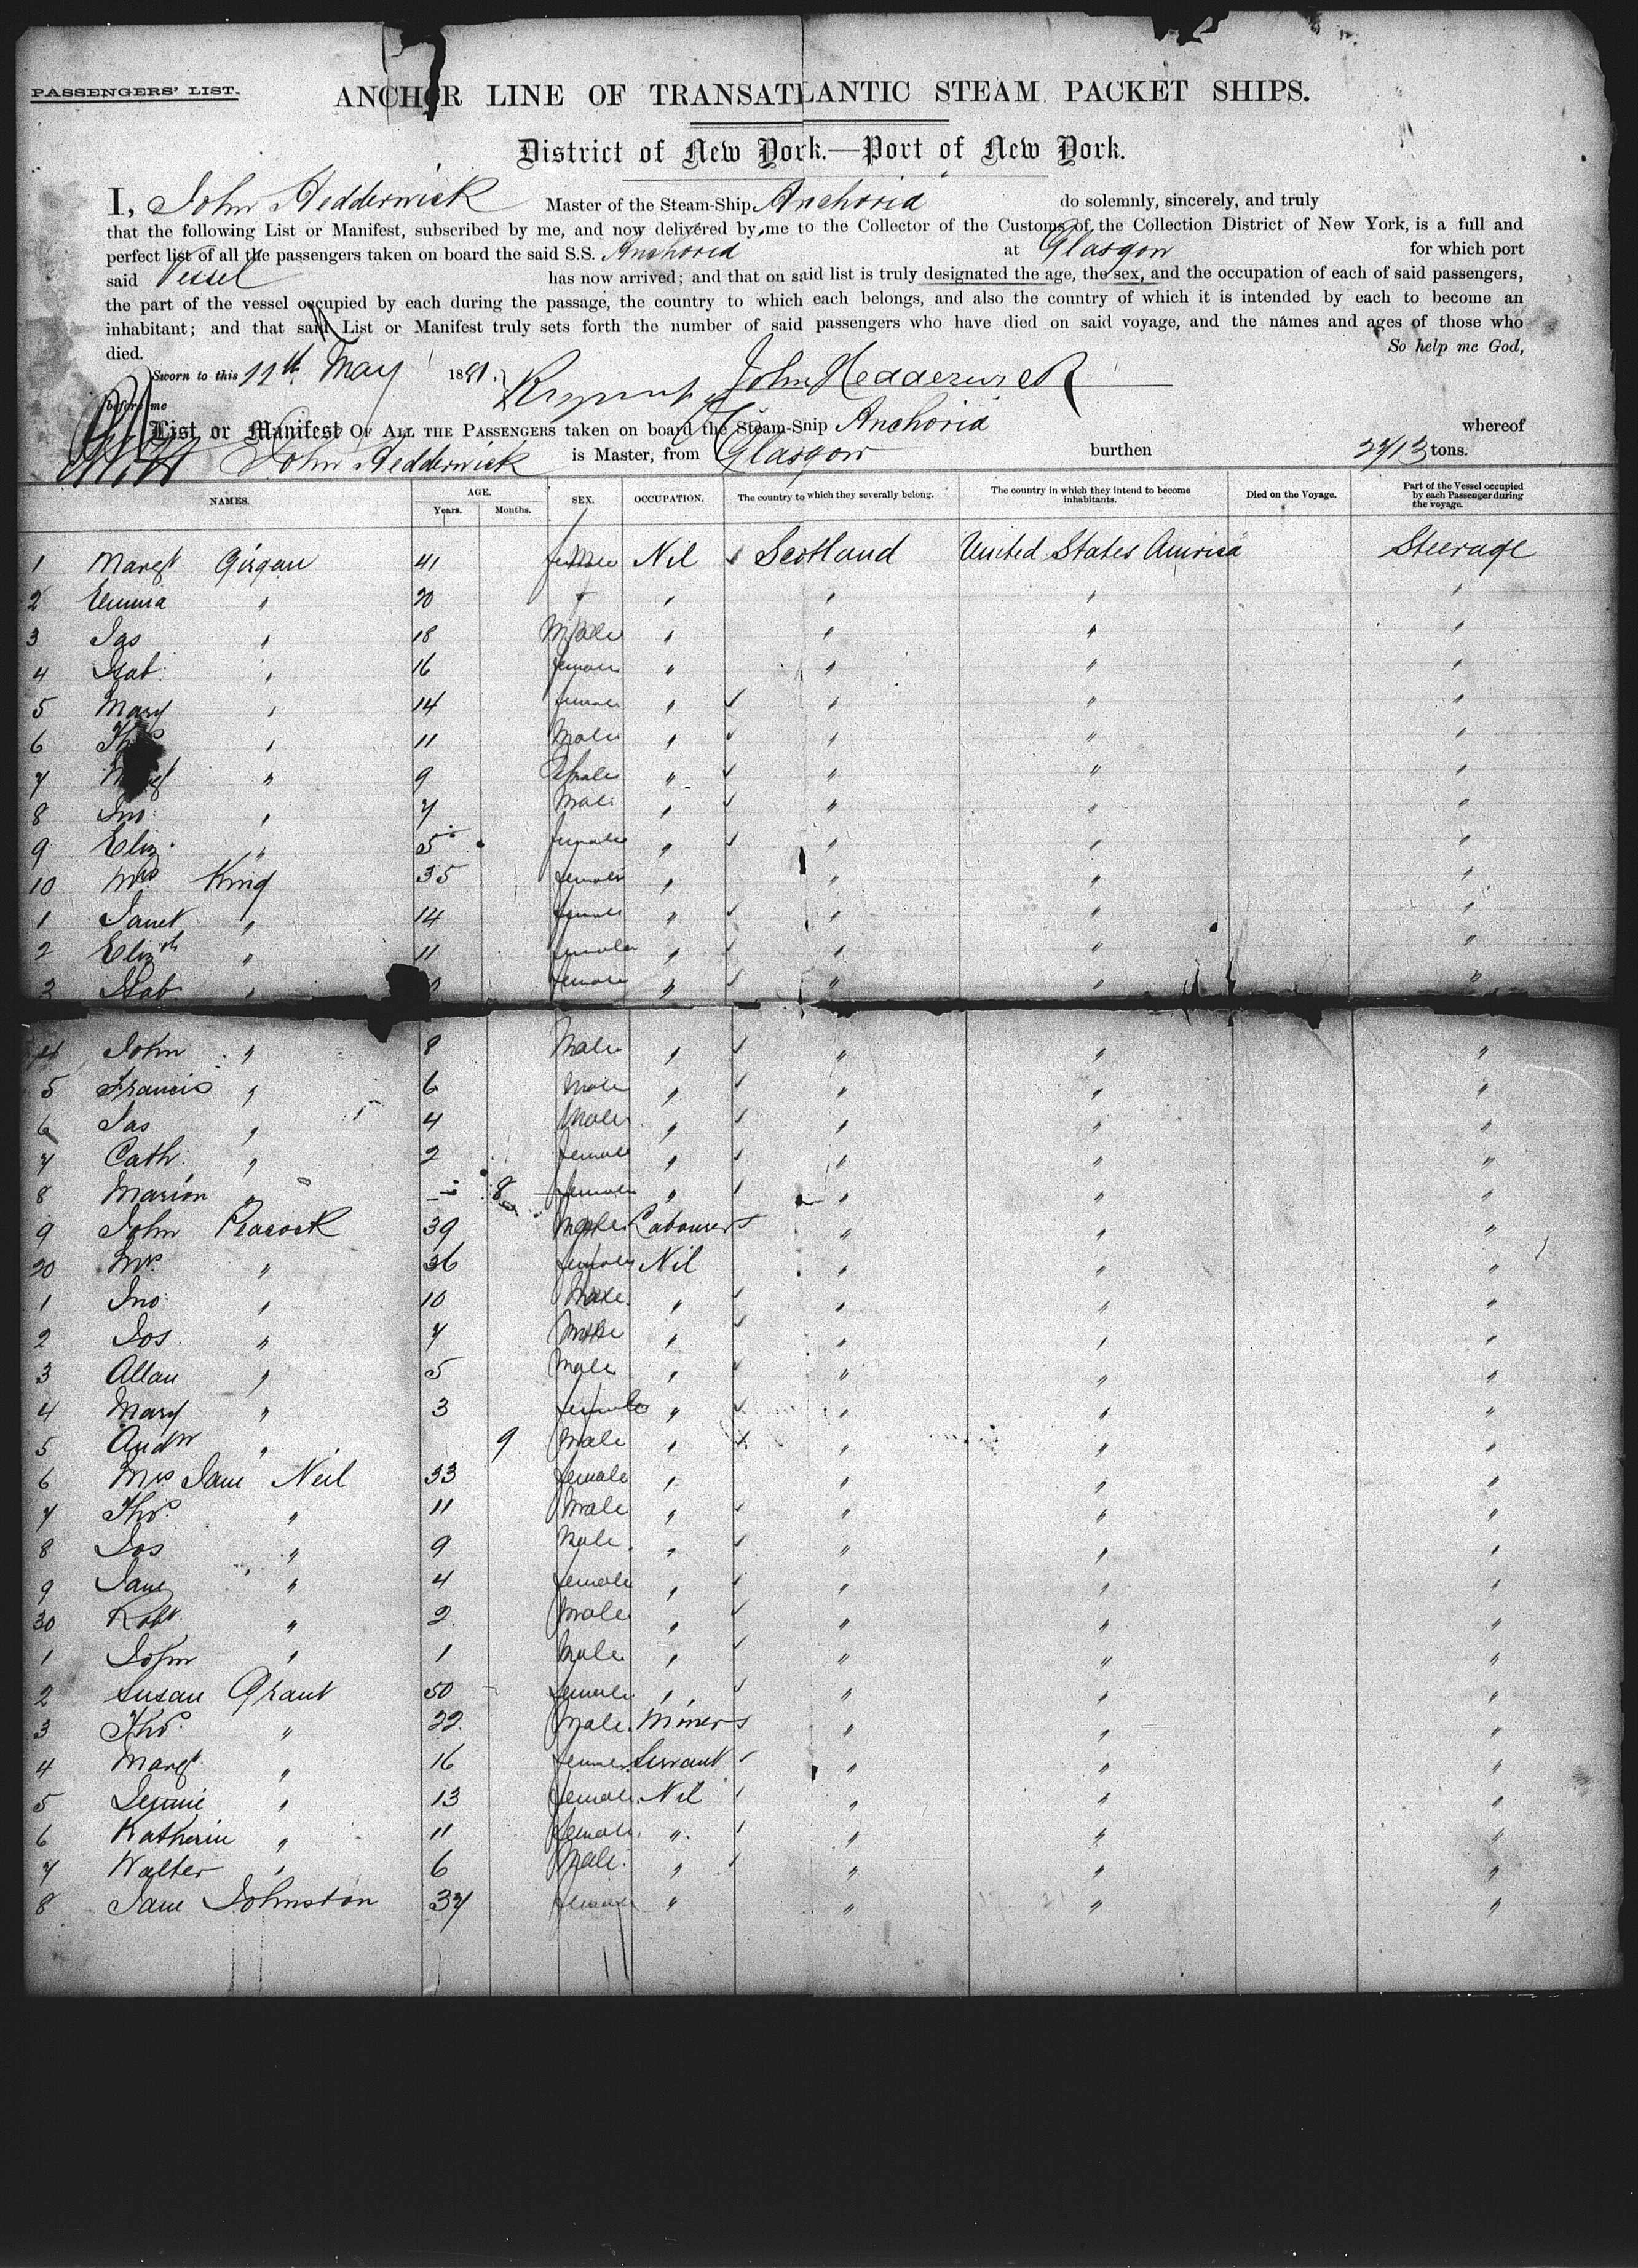 PASSENGERS' LIST.
ANCHOR LINE OF TRANSATLANTIC STEAM PACKET SHIPS.
District of New York.—Port of New York.
I, John Hedderwick Master of the Steam-Ship Anchoria do solemnly, sincerely, and truly
that the following List or Manifest, subscribed by me, and now delivered by me to the Collector of the Customs of the Collection District of New York, is a full and
perfect list of all the passengers taken on board the said S.S. Anchoria at Glasgow for which port
said Vessel has now arrived; and that on said list is truly designated the age, the sex, and the occupation of each of said passengers,
the part of the vessel occupied by each during the passage, the country to which each belongs, and also the country of which it is intended by each to become an
inhabitant; and that said List or Manifest truly sets forth the number of said passengers who have died on said voyage, and the names and ages of those who
died. So help me God,
Sworn to this 11th May 1881. John Hedderwick
before me
List or Manifest OF ALL THE PASSENGERS taken on board the Steam-Ship Anchoria whereof
John Hedderwick is Master, from Glasgow burthen 2713 tons.
NAMES. AGE. Years. Months. SEX. OCCUPATION. The country to which they severally belong. The country in which they intend to become inhabitants. Died on the Voyage. Part of the Vessel occupied by each Passenger during the voyage.
1 Margt 41 female Nil Scotland United States America Steerage
2 Emma " 20 " " " " "
3 Jas " 18 Male " " " "
4 Isab: " 16 female " " " "
5 Mary " 14 female " " " "
6 Thos " 11 Male " " " "
7 Margt " 9 female " " " "
8 Jno: " 7 Male " " " "
9 Eliz: " 5 female " " " "
10 Mrs King 35 female " " " "
1 Janet " 14 female " " " "
2 Elizth " 11 female " " " "
3 Isab " female " " " "
4 John " 8 Male " " " "
5 Francis " 6 Male " " " "
6 Jas " 4 Male " " " "
7 Cath: " 2 female " " " "
8 Marion " 8 female " " " "
9 John Peacock 39 Male Labourer " " "
20 Mrs " 36 female Nil " " "
1 Jno: " 10 Male " " " "
2 Jos " 7 Male " " " "
3 Allan " 5 Male " " " "
4 Mary " 3 female " " " "
5 Andw " 9 Male " " " "
6 Mrs Jane Neil 33 female " " " "
7 Thos " 11 Male " " " "
8 Jos " 9 Male " " " "
9 Jane " 4 female " " " "
30 Robt " 2 Male " " " "
1 John " 1 Male " " " "
2 Susan Grant 50 female " " " "
3 Thos " 22 Male Miner " " "
4 Margt " 16 female Servant " " "
5 Jennie " 13 female Nil " " "
6 Katherin " 11 female " " " "
7 Walter " 6 Male " " " "
8 Jane Johnston 37 female " " " "